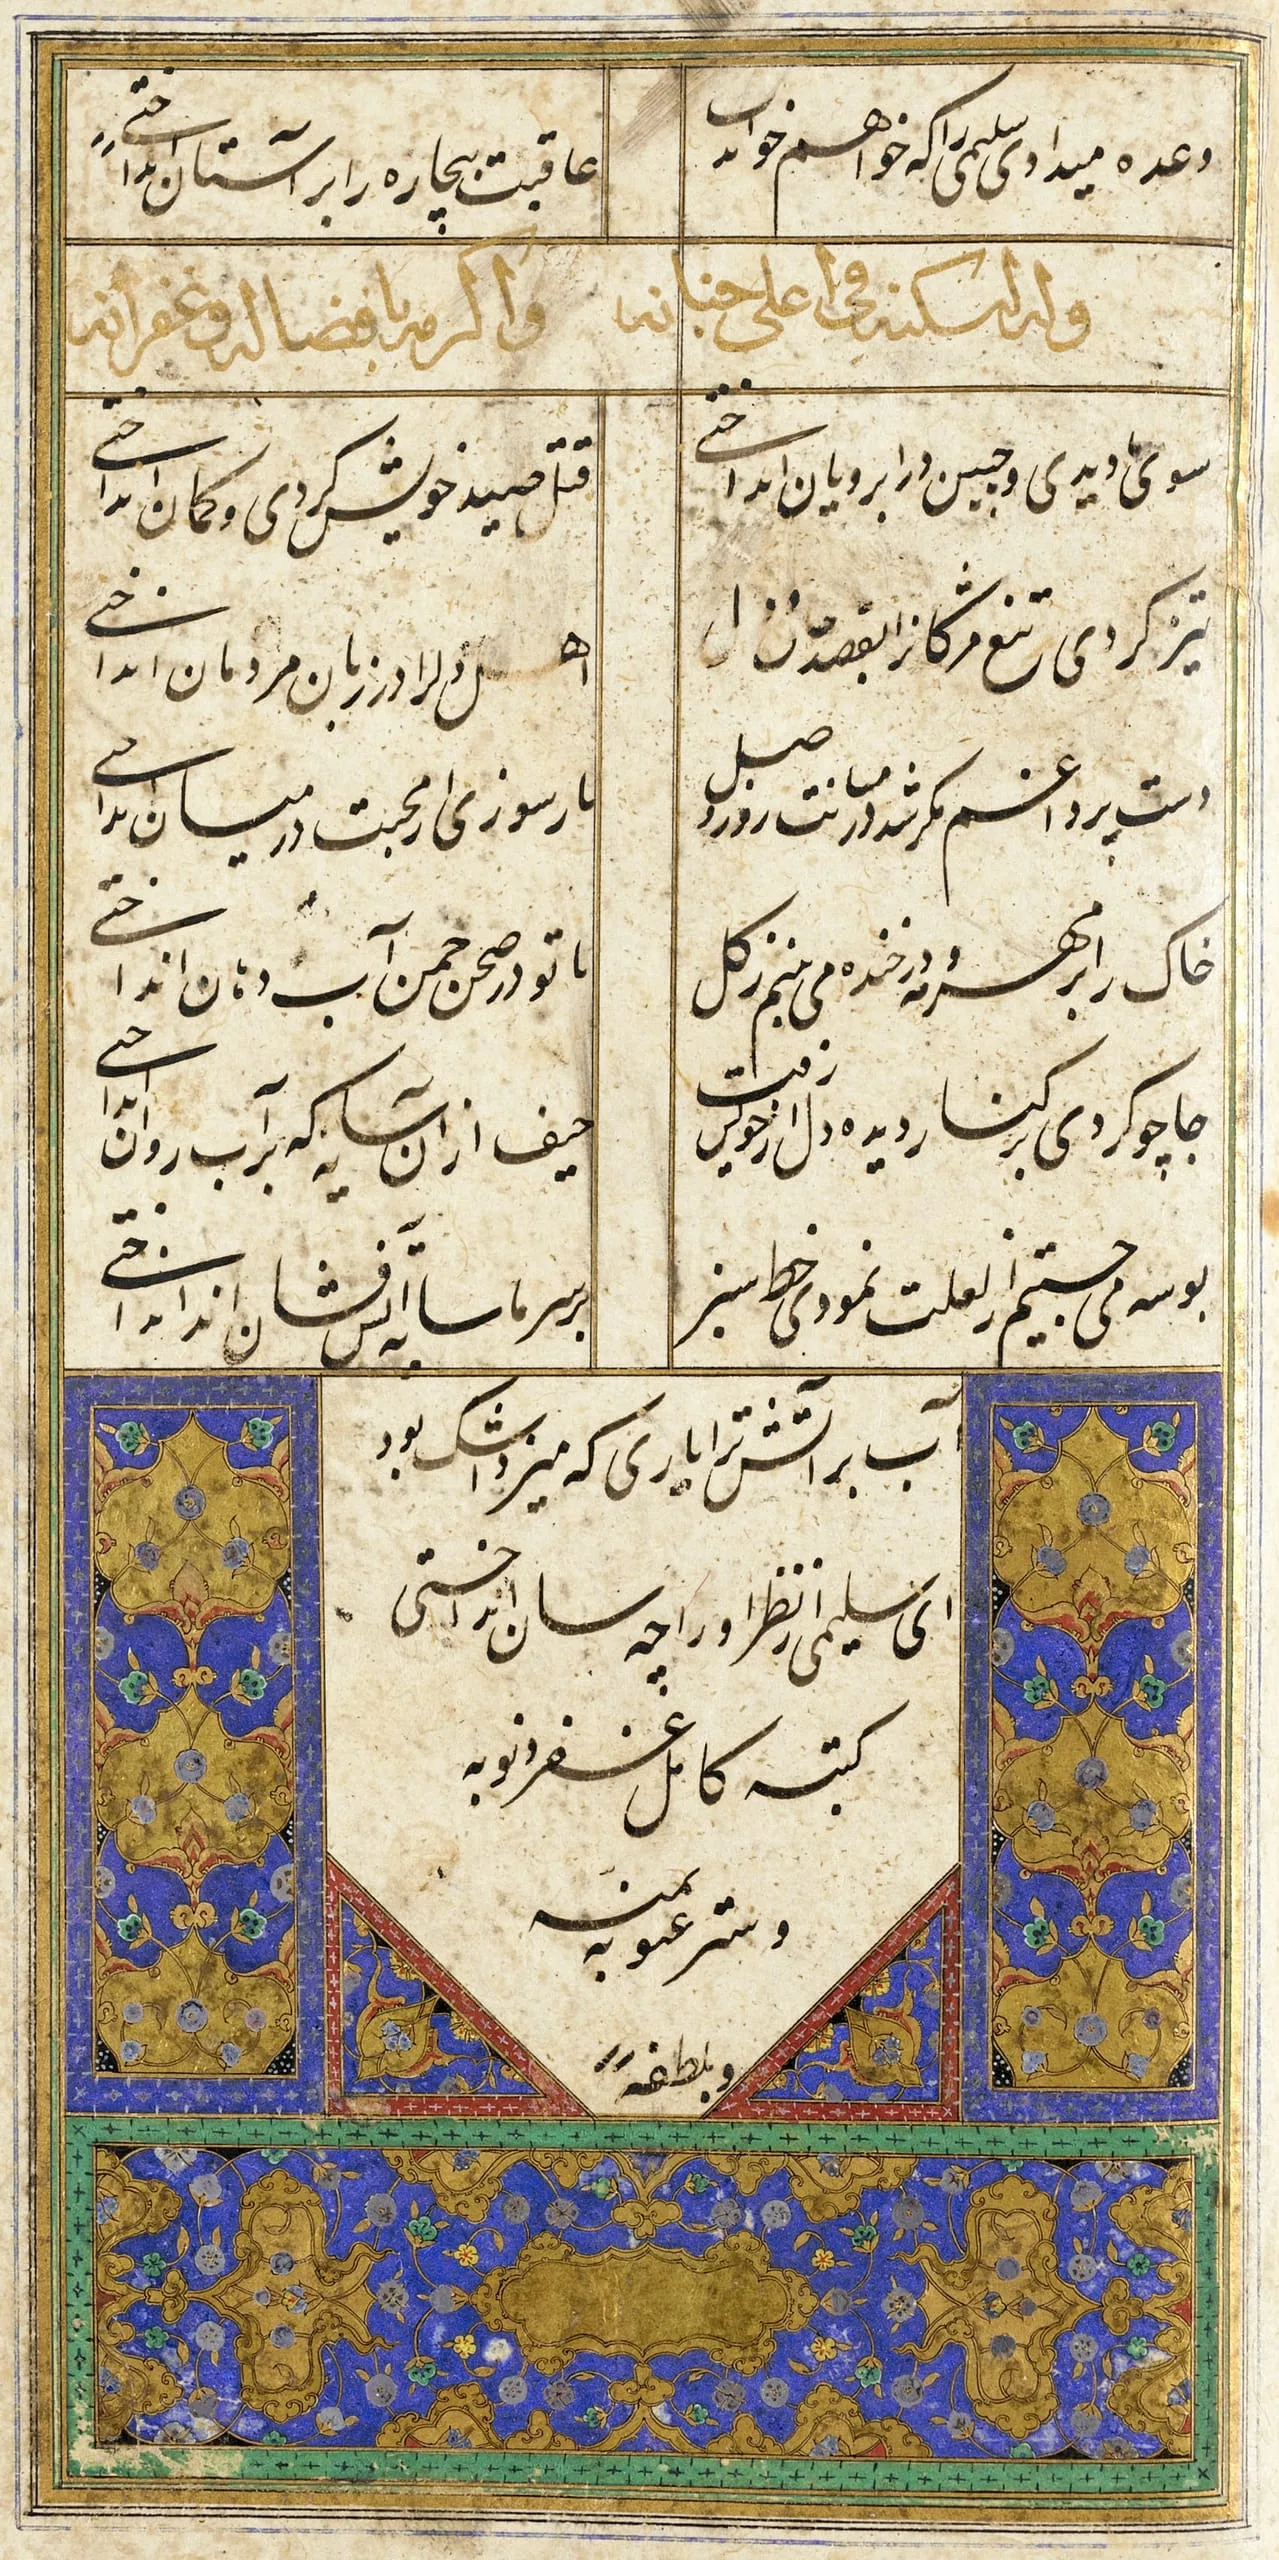 وعده میدادی سلیمی را که خواهم خواند
عاقبت بیچاره را بر آستان انداختی
وله اسکنه فی اعلی جنانه واکرمه بافضاله وغفرانه
سوی ما دیدی و چین در ابرویان انداختی
قتل صید خویش کردی و کمان انداختی
تیز کردی تیغ مژگانرا بقصد
اهل دلرا در زبان مردمان انداختی
دست بر داغم مگر شد در میانت روز وصل
تا ز سوزی از محبت در میان انداختی
خاک را بر در خنده می بینم ز گل
تا تو در صحن چمن آب دهان انداختی
جا چو کردی بر کنار دیده دل از خویش رفت
حیف ازان سایه که بر آب روان انداختی
بوسه می جستیم از لعلت نمودی خط سبز
بر سر ما سایه انداختی
آب بر آتش ترا یاری که میزد اشک بود
ای سلیمی از نظر او را چه سان انداختی
کتبه کامل غفر ذنوبه
وستر عیوبه بمنه
وبلطفه